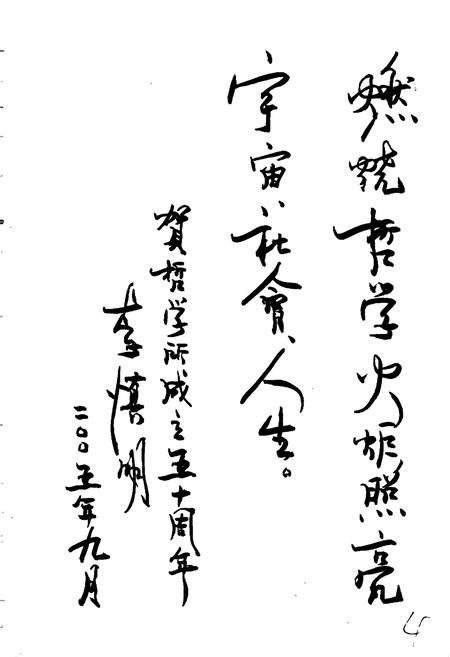 燃烧哲学火炬照亮
宇宙、社會、人生。
賀哲学所成立五十周年
李慎明
二〇〇五年九月
4